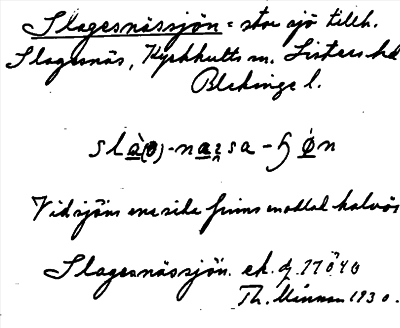 Slagesnässjön = stor sjö tillh.
Slagesnäs, Kyrkhults sn. Listers hd
Blekinge l.
sla(g)-næsa-ɧøn
Vid sjöns ena sida finns en halvö
Slagesnässjön. ek. 77040
Th. 1930.